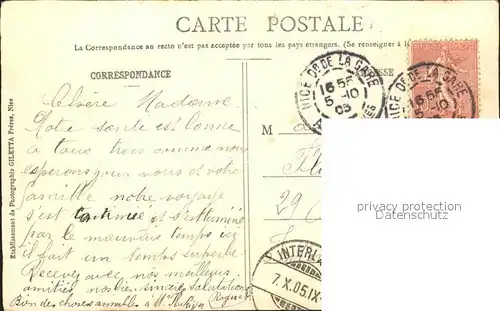 CARTE POSTALE
La Correspondance au recto n'est pas acceptée par tous les pays étrangers. (Se renseigner à l
CORRESPONDANCE
Chère Madame
Notre santé est bonne
à tous trois comme nous
espérons pour vous et votre
famille notre voyage
s'est continué et s'est terminé
par le mauvais temps ici
il fait un temps superbe
Recevez avec nos meilleures
amitiés nos bien sincères salutations
Bon des choses aimables à Mr
Etablissement de Photographie GILETTA Frères, Nice
M
29
NICE DE LA GARE
16 55
5 -10
05
NICE DE LA GARE
16 55
5 -10
INTERL
7.X.05.IX
privacy protection
Datenschutz